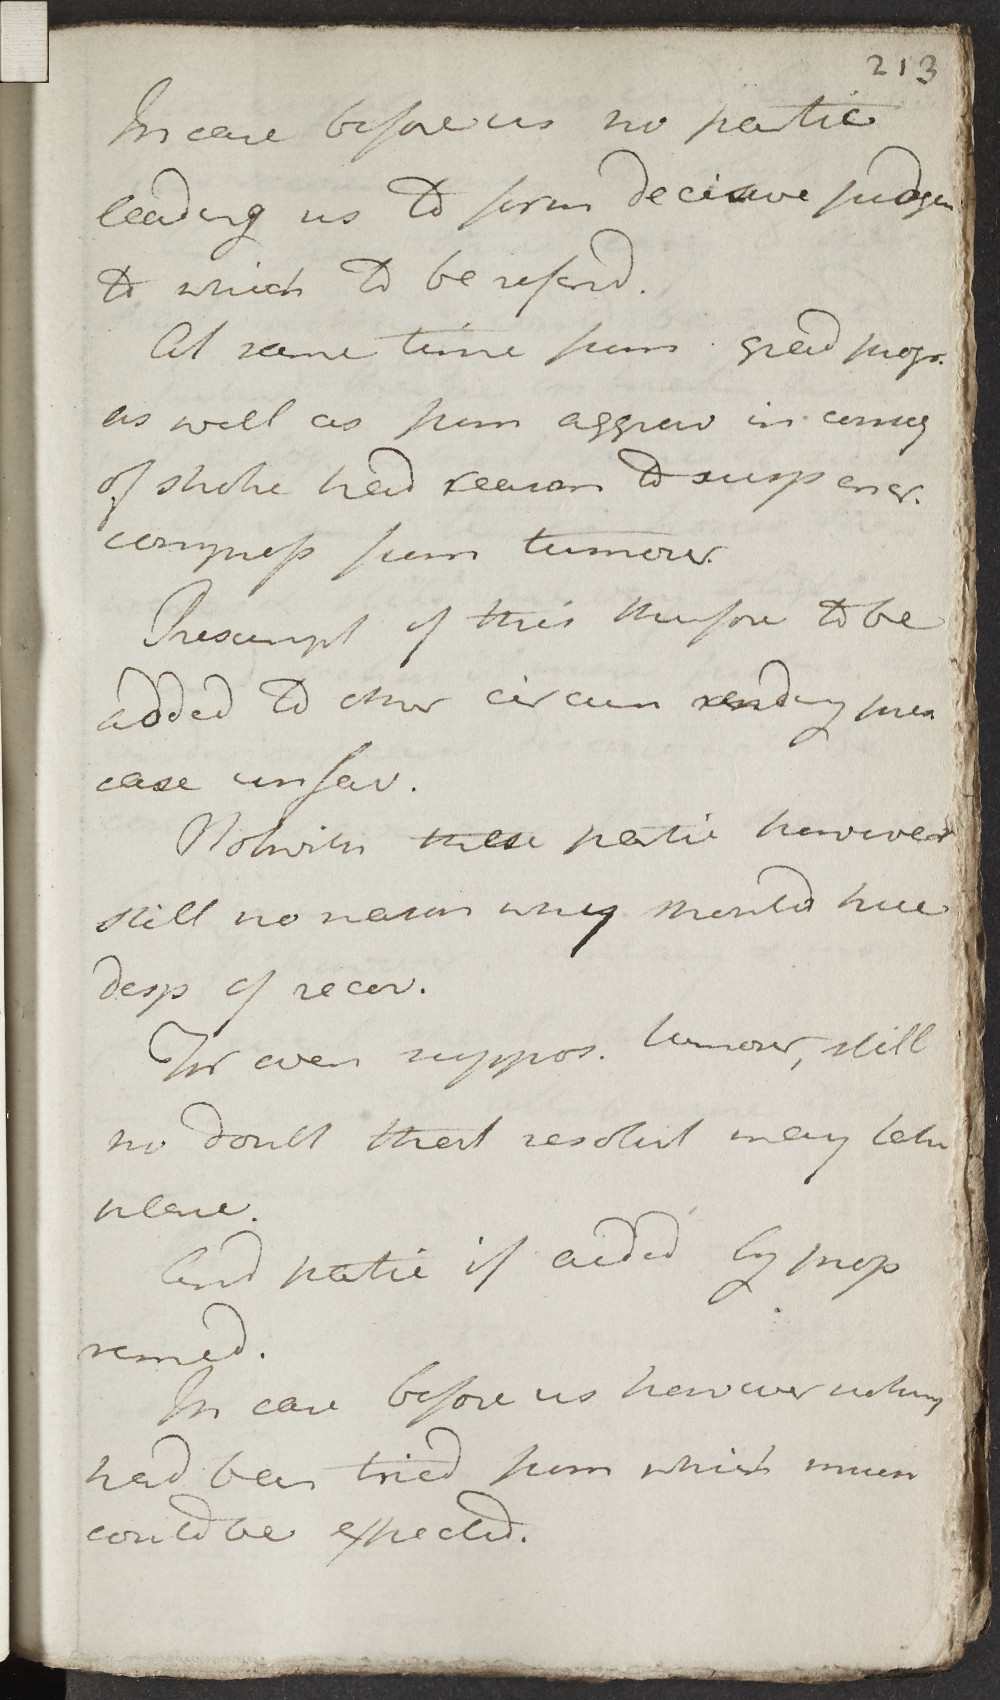 213
In case before us no partic
leading us to form decisive judgm
to which to be referd.
At same time from grad progr.
as well as from aggrav in conseq
of stroke had reason to susp
compress from tumour.
Presumpt of this therefore to be
added to other circum rendering pres
case unfav.
Notwith these partic however
still no reason why should have
desp of recov.
For even suppos. tumour, still
no doubt that resolut may take
place.
And partic if aided by prop
remed.
In case before us however nothing
had been tried from which much
could be expected.